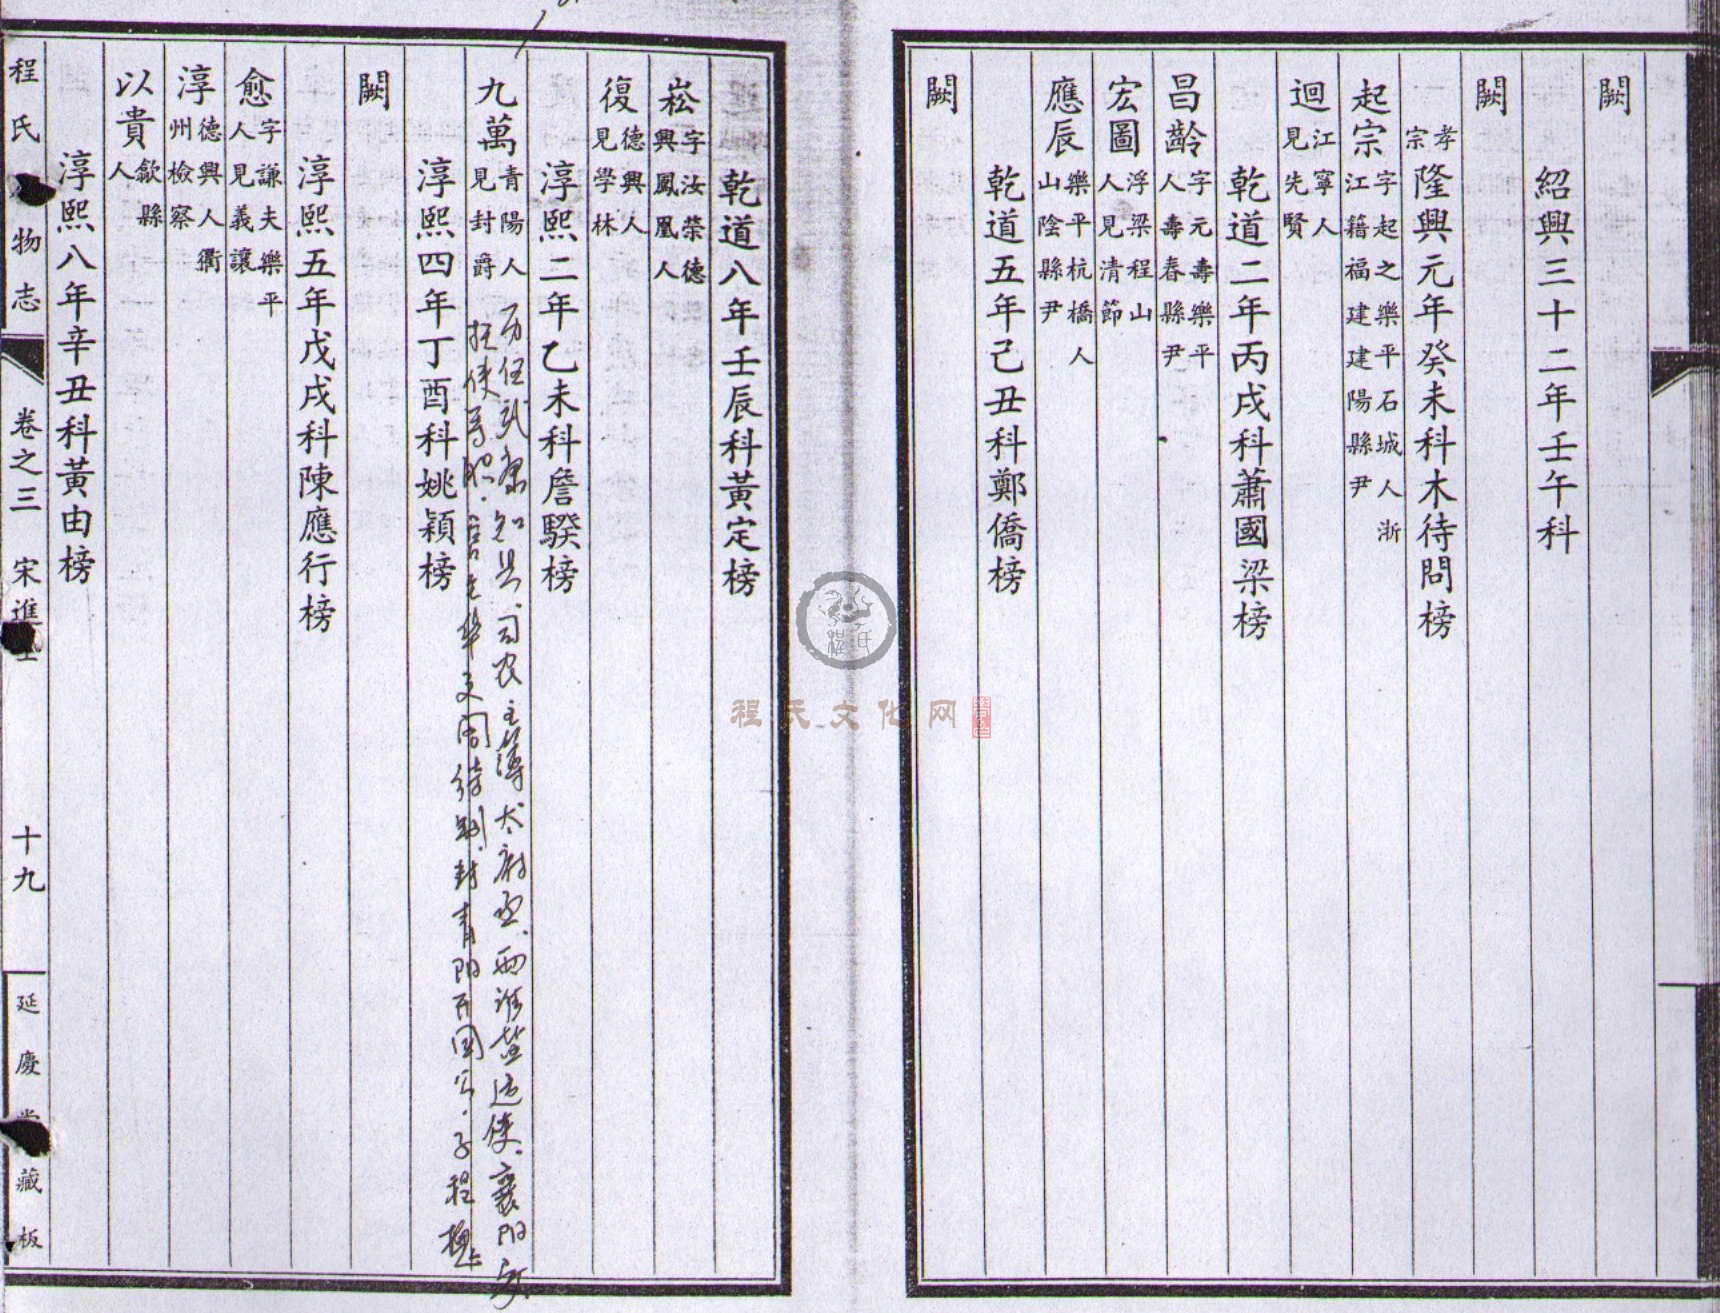 闕
紹興三十二年壬午科
闕
孝宗
隆興元年癸未科木待問榜
起宗字起之樂平石城人浙
江籍福建建陽縣尹
迴江寧人
見先賢
乾道二年丙戌科蕭國梁榜
昌齡字元壽樂平
人壽春縣尹
宏圖浮梁程山
人見清節
應辰樂平杭橋人
山陰縣尹
乾道五年己丑科鄭僑榜
闕
乾道八年壬辰科黃定榜
崧字汝榮德
興鳳凰人
復德興人
見學林
淳熙二年乙未科詹騤榜
九萬青陽人
見封爵
歷任武康知县、司农主薄太府丞、西
襄阳
官至华文阁待制封青阳
子程
淳熙四年丁酉科姚穎榜
闕
淳熙五年戊戌科陳應行榜
愈字謙夫樂平
人見義讓
淳德興人衢
州檢察
以貴歙縣
人
淳熙八年辛丑科黃由榜
程氏 物志 卷之三 宋進士 十九 延慶堂藏板
程氏文化网